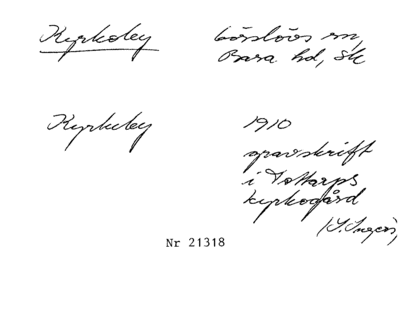 Kyrkoley
Görslövs sn,
Bara hd, Sk
Kyrkoley
1910
gravskrift
i Tottarps
kyrkogård
Nr 21318